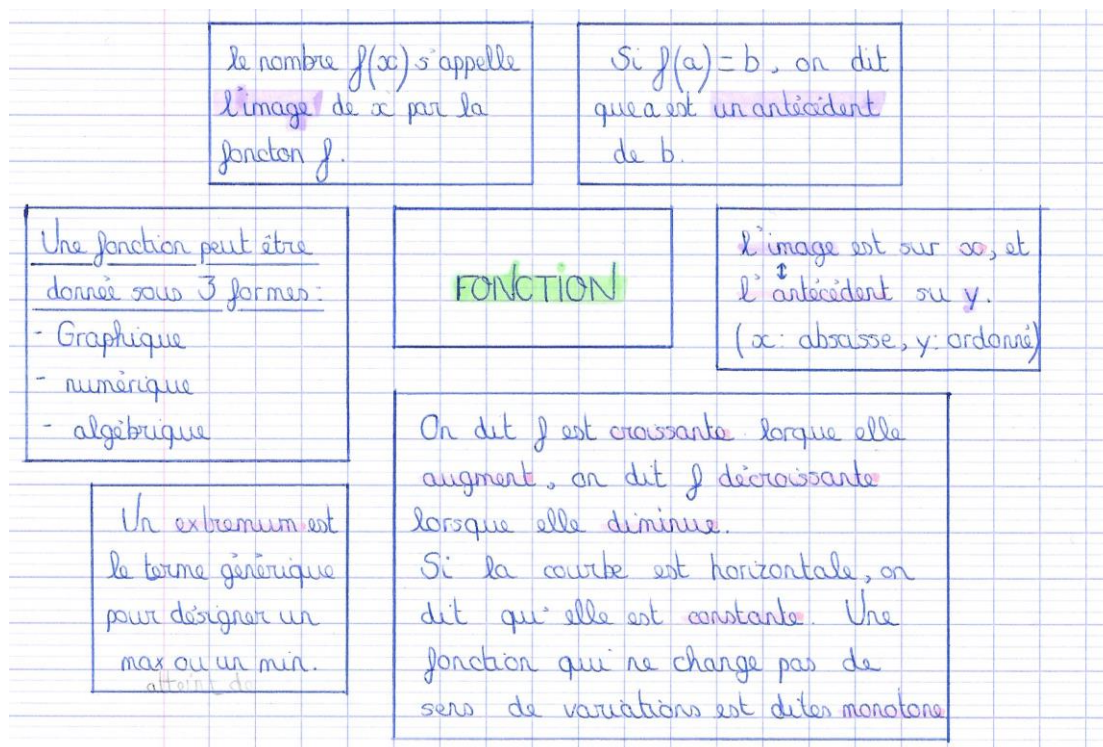 le nombre f(x) s'appelle
l'image de x par la
foncton f.
Si f(a) = b, on dit
que a est un antécédent
de b.
Une fonction peut être
donnée sous 3 formes :
- Graphique
- numérique
- algébrique
FONCTION
l'image est sur x, et
↕
l'antécédent su y.
(x : absasse, y : ordonné)
Un extremum est
le terme générique
pour désigner un
max ou un min.
atteint de
On dit f est croissante lorque elle
augment, on dit f décroissante
lorsque elle diminue.
Si la courbe est horizontale, on
dit qu'elle est constante. Une
fonction qui ne change pas de
sens de variations est dites monotone